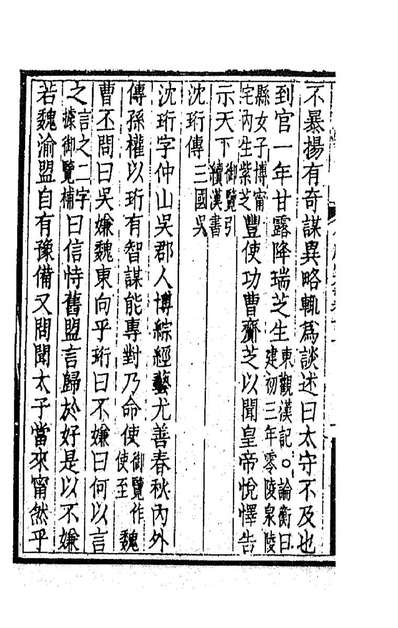 不暴揚有奇謀異略輒爲談述曰太守不及也
到官一年甘露降瑞芝生東觀漢記○論衡曰建初三年零陵泉陵
縣女子傅甯宅內生紫芝豐使功曹齎芝以聞皇帝悅懌告
示天下御覽引續漢書
沈珩傳三國吳
沈珩字仲山吳郡人博綜經藝尤善春秋內外
傳孫權以珩有智謀能專對乃命使御覽作使至魏
曹丕問曰吳嫌魏東向乎珩曰不嫌曰何以言
之言之二字據御覽補曰信恃舊盟言歸於好是以不嫌
若魏渝盟自有豫備又問聞太子當來甯然乎